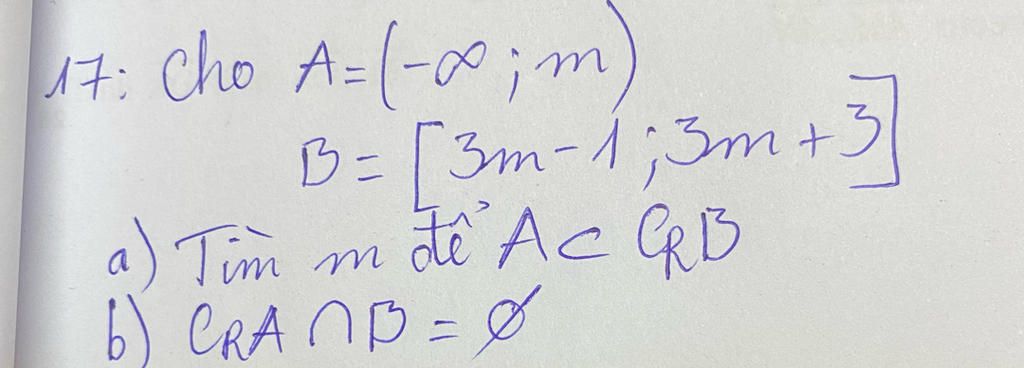 17: Cho A = (-∞ ; m)
B = [3m - 1 ; 3m + 3]
a) Tìm m để A ⊂ CRB
b) CRA ∩ B = ∅